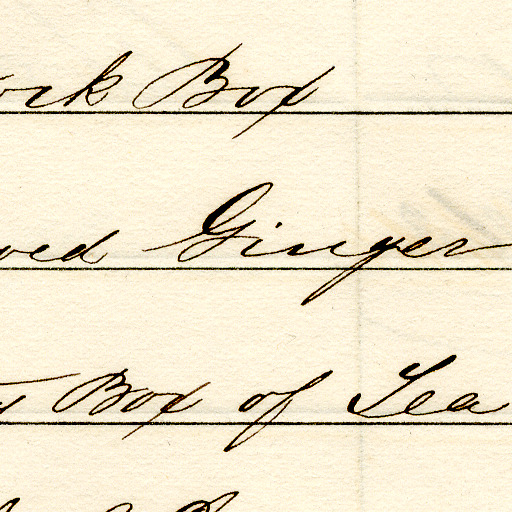 ork Box
ved Ginger
Box of Tea